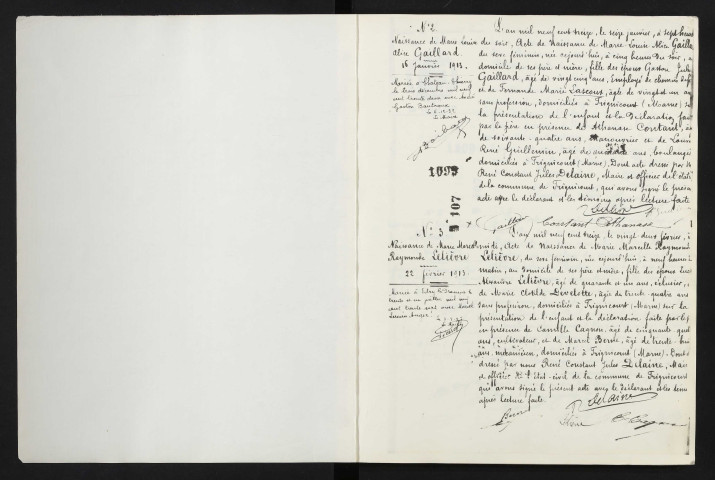 N° 2
Naissance de Marie Louise
Alice Gaillard
16 Janvier 1913.
Mariée à
le trois décembre mil neuf
cent trente deux avec André
Gaston
Le Maire
1093
107
L'an mil neuf cent treize, le seize janvier, à sept heures
du soir, Acte de naissance de Marie Louise Alice Gaillard
du sexe féminin, née aujourd'hui, à cinq heures du soir, au
domicile de ses père et mère, fille des époux Gaston Jules
Gaillard, âgé de vingt cinq ans, Employé de chemin de fer
et de Fernande Marie Lascous, âgée de vingt et un ans
sans profession, domiciliés à Frignicourt (Marne) sur
la présentation de l'enfant et la déclaration faite
par le père en présence de Athanase Contant, âgé
de soixante-quatre ans, Manouvrier et de Louis
René Guillemin, âgé de ans, boulanger
domiciliés à Frignicourt (Marne). Dont acte dressé par
René Constant Jules Delaine, Maire et officier de l'état
de la commune de Frignicourt, qui avons signé le présent
acte avec le déclarant et les témoins après lecture faite
Gaillard Contant Athanase
N° 3
Naissance de Marie Marcelle
Raymonde Lelièvre
22 février 1913.
Mariée à
trente et un juillet mil neuf
cent trente avec
Lucien
L'an mil neuf cent treize, le vingt deux février, à
midi, Acte de naissance de Marie Marcelle Raymonde
Lelièvre, du sexe féminin, née aujourd'hui, à neuf heures du
matin, au domicile de ses père et mère, fille des époux
Lelièvre, âgé de quarante et un ans, éclusier,
de Marie Clotilde Develotte, âgée de trente quatre ans
sans profession, domiciliés à Frignicourt (Marne) sur la
présentation de l'enfant et la déclaration faite par le père
en présence de Camille Cagnon, âgé de cinquante quatre
ans, cultivateur, et de Marcel Berne, âgé de trente-huit
ans, mécanicien, domiciliés à Frignicourt (Marne). Dont acte
dressé par nous René Constant Jules Delaine, Maire
et officier de l'état-civil de la commune de Frignicourt
qui avons signé le présent acte avec le déclarant et les témoins
après lecture faite.
Delaine